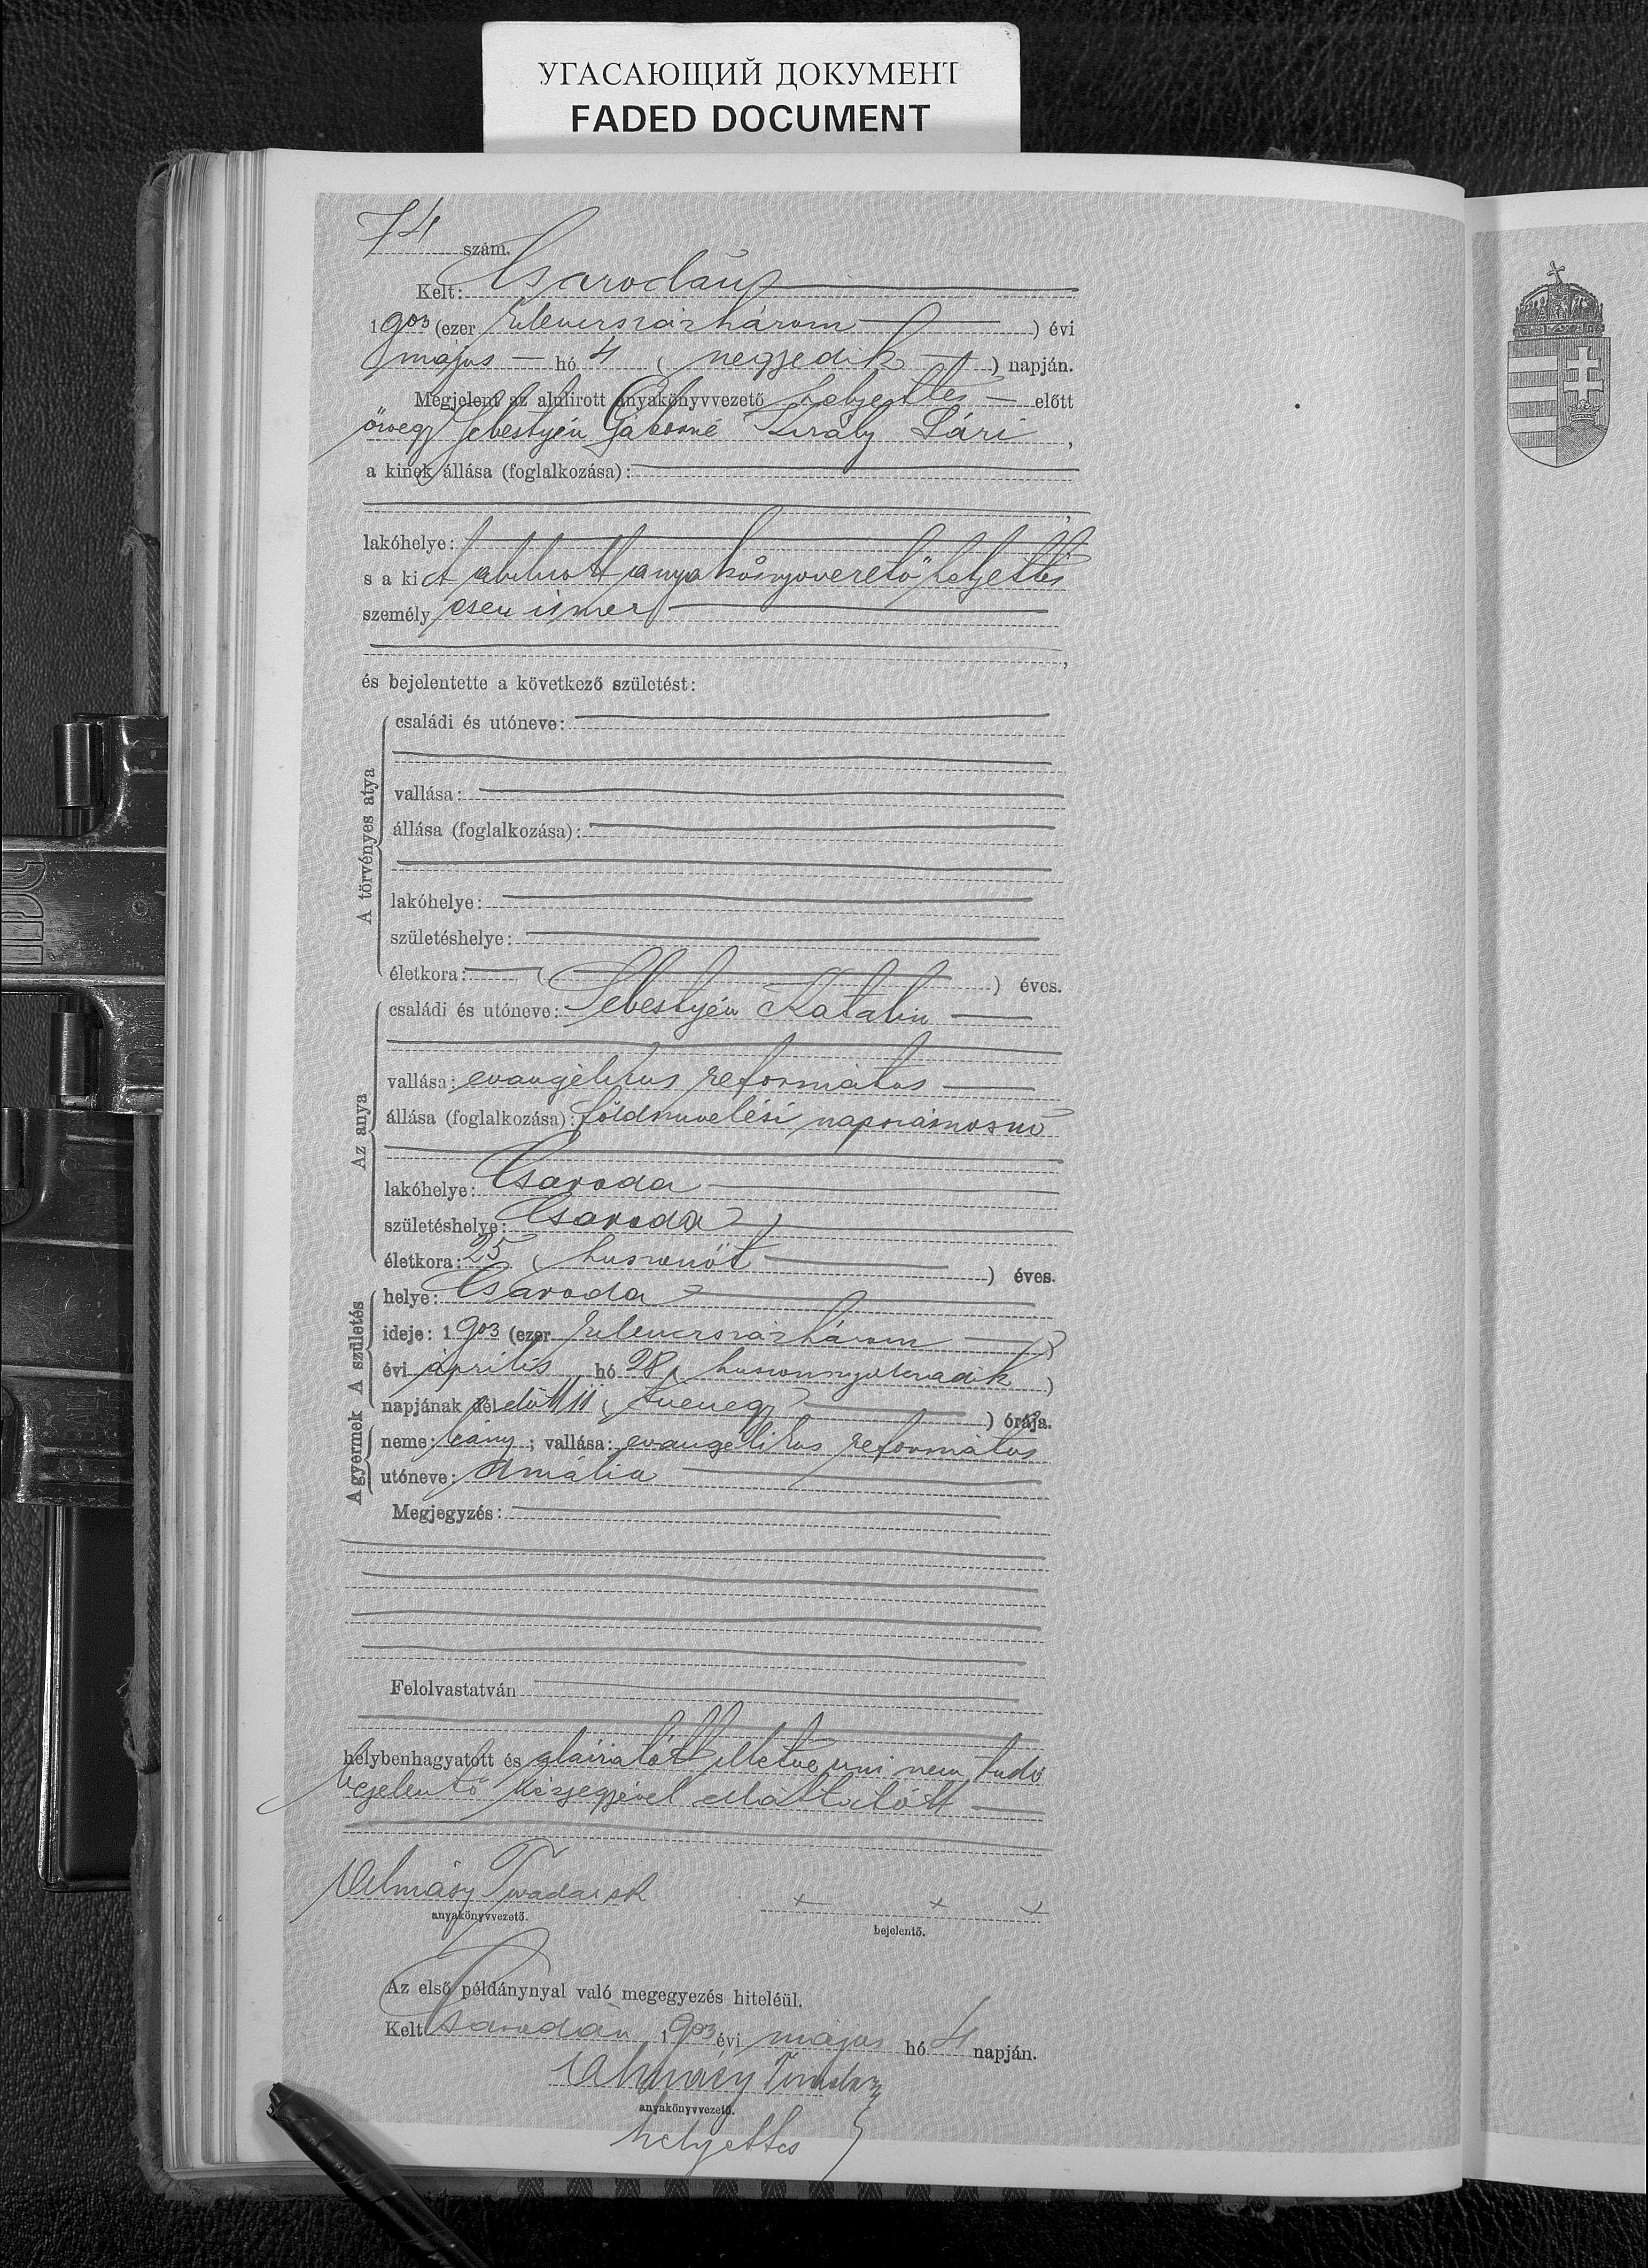 УГАСАЮЩИЙ ДОКУМЕНТ
FADED DOCUMENT
74 szám.
Kelt: Csarodán
1903 (ezer kilencszázhárom ) évi
május hó 4 ( negyedik ) napján.
Megjelent az alulirott anyakönyvvezető helyettes előtt
özvegy Sebestyén Gáborné Király Sári,
a kinek állása (foglalkozása):
lakóhelye:
s a kit alulirott anyakönyvvezető helyettes
személyesen ismer
és bejelentette a következő születést:
A törvényes atya
családi és utóneve:
vallása:
állása (foglalkozása):
lakóhelye:
születéshelye:
életkora: ( ) éves.
Az anya
családi és utóneve: Sebestyén Katalin
vallása: evangélikus református
állása (foglalkozása): földmuvelési napszámosnő
lakóhelye: Csaroda
születéshelye: Csaroda
életkora: 25 ( huszonöt ) éves.
A születés
helye: Csaroda
ideje: 1903 (ezer kilencszázhárom )
évi április hó 28 ( huszonnyolcadik )
napjának délelőtt 11 ( tizenegy ) órája.
A gyermek
neme: leány; vallása: evangelikus református
utóneve: Amália
Megjegyzés:
Felolvastatván
helybenhagyatott és aláiratott illetve irni nem tudó
bejelentő kézjegyével elláttatott
Almásy Tivadar sk
anyakönyvvezető.
+ + +
bejelentő.
Az első példánynyal való megegyezés hiteléül.
Kelt Csarodán 1903 évi május hó 4 napján.
Almásy Tivadar
anyakönyvvezető.
helyettes